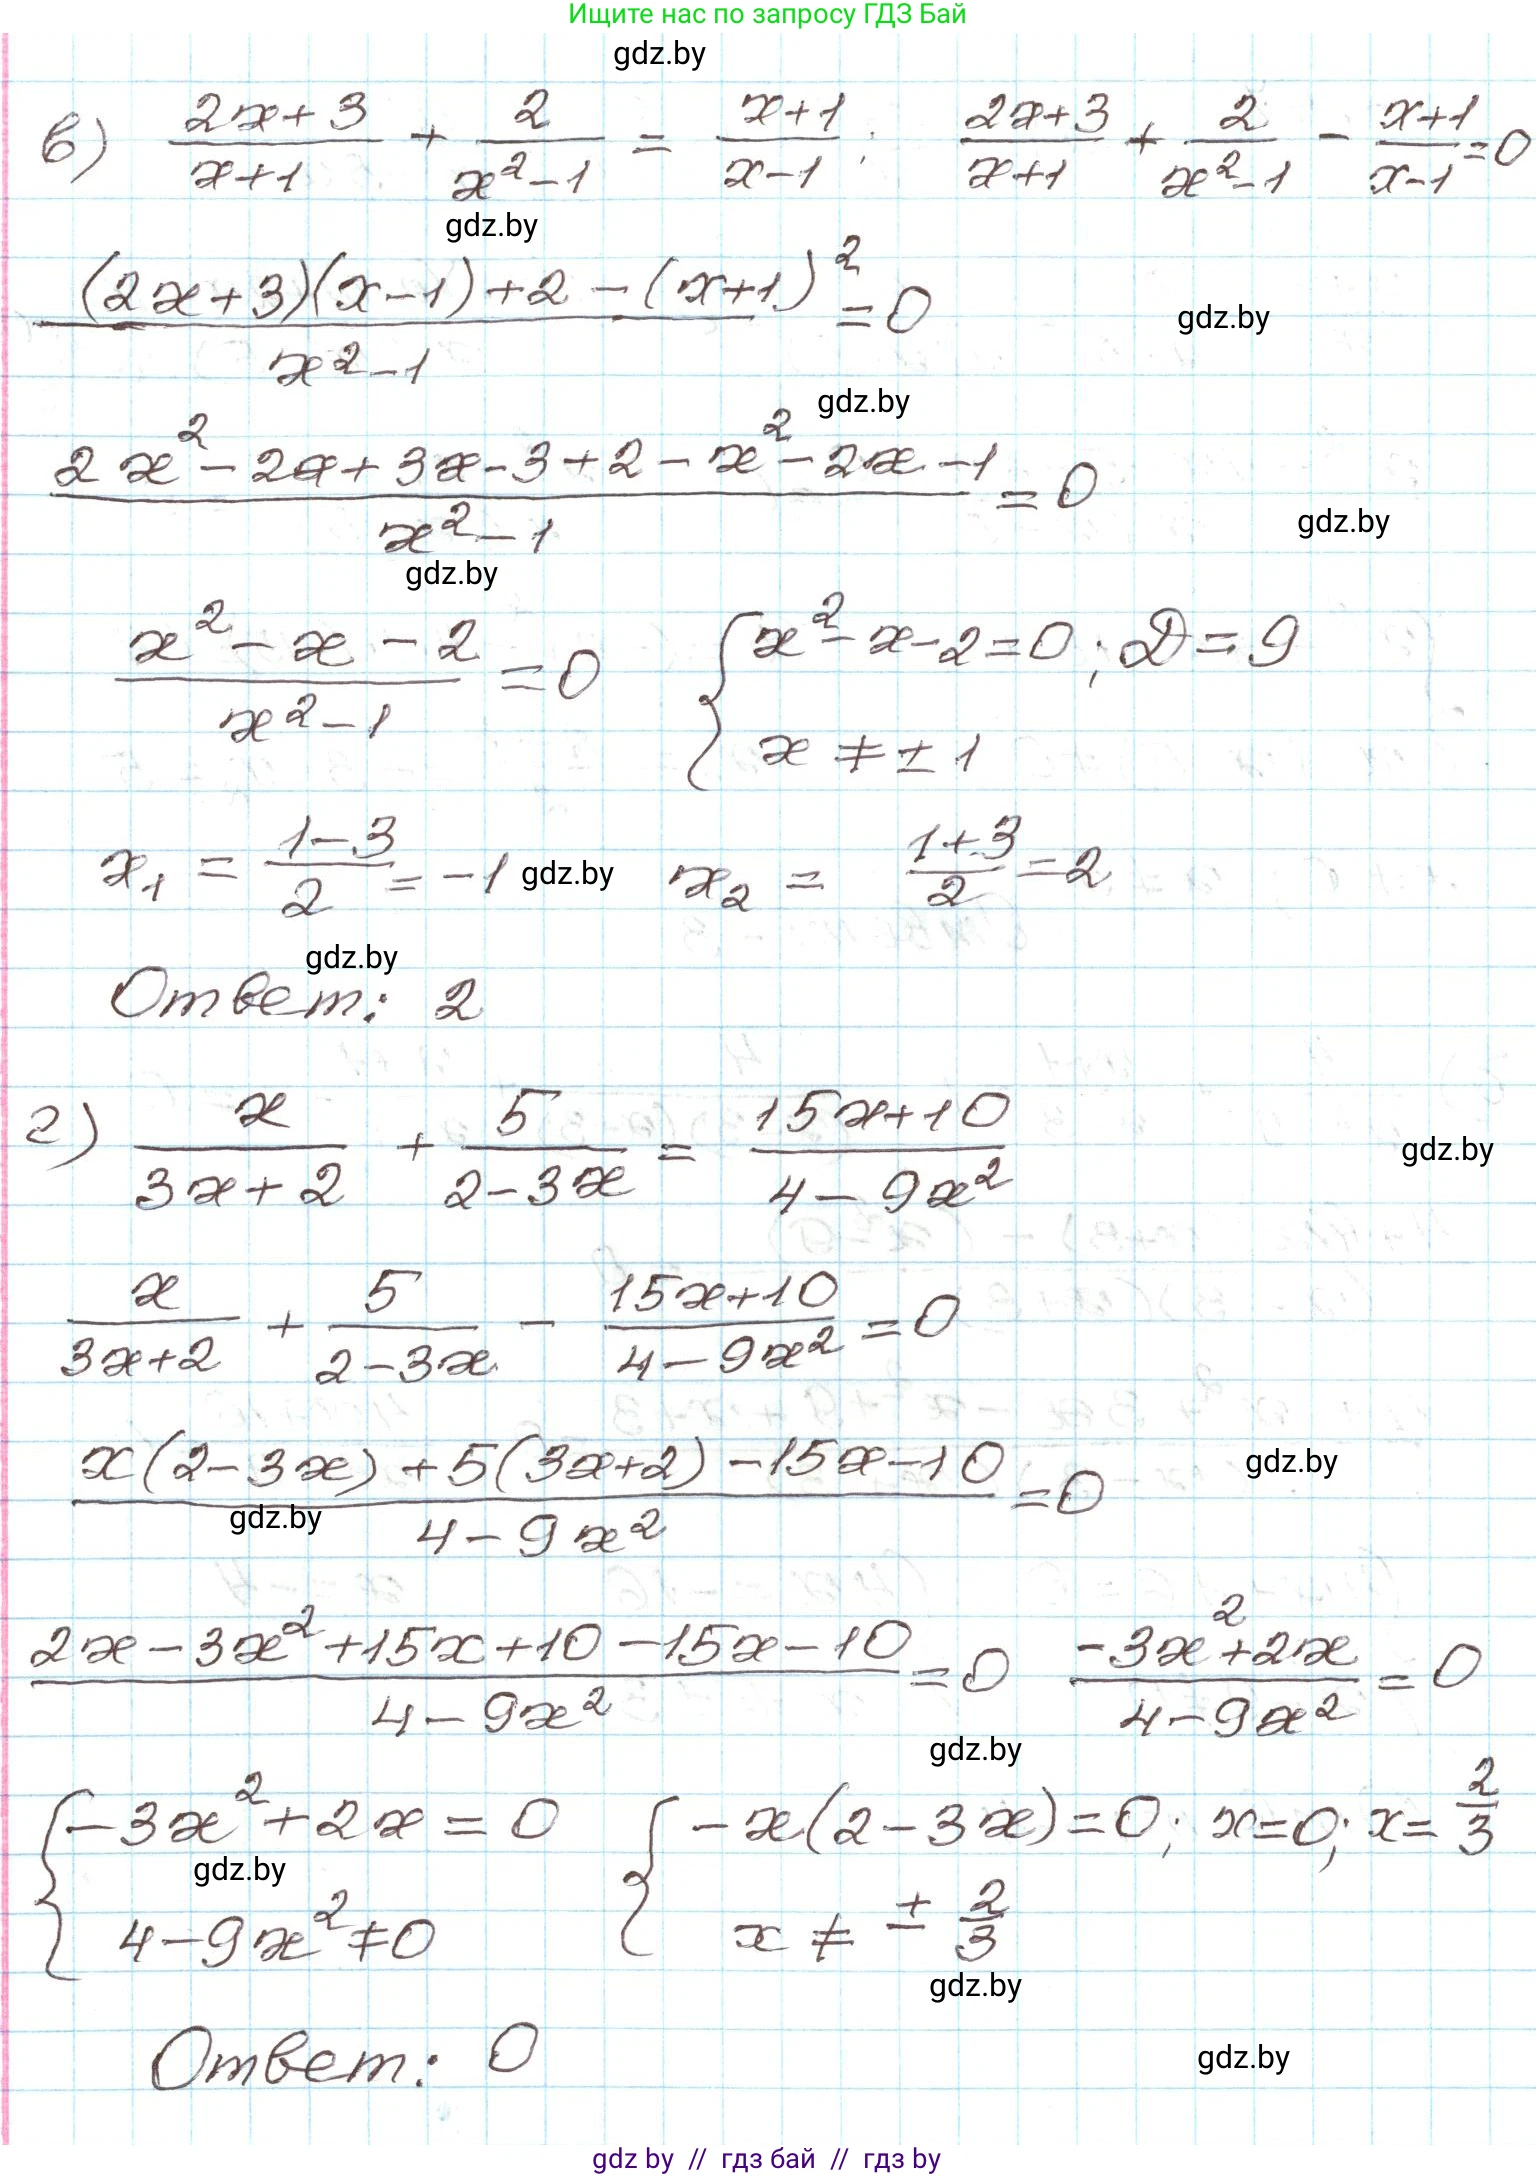 Ищите нас по запросу ГДЗ Бай
gdz.by
в) (2x+3)/(x+1) + 2/(x²-1) = (x+1)/(x-1); (2x+3)/(x+1) + 2/(x²-1) - (x+1)/(x-1) = 0
gdz.by
((2x+3)(x-1)+2-(x+1)²)/(x²-1) = 0
gdz.by
gdz.by
(2x²-2x+3x-3+2-x²-2x-1)/(x²-1) = 0
gdz.by
gdz.by
(x²-x-2)/(x²-1) = 0 { x²-x-2=0; D=9
x ≠ ±1
x₁ = (1-3)/2 = -1 gdz.by x₂ = (1+3)/2 = 2
gdz.by
Ответ: 2
г) x/(3x+2) + 5/(2-3x) = (15x+10)/(4-9x²)
gdz.by
x/(3x+2) + 5/(2-3x) - (15x+10)/(4-9x²) = 0
(x(2-3x)+5(3x+2)-15x-10)/(4-9x²) = 0
gdz.by
gdz.by
(2x-3x²+15x+10-15x-10)/(4-9x²) = 0 (-3x²+2x)/(4-9x²) = 0
gdz.by
{ -3x²+2x=0 { -x(2-3x)=0; x=0; x=2/3
gdz.by
4-9x²≠0 x ≠ ± 2/3
gdz.by
Ответ: 0
gdz.by
gdz by // гдз бай // гдз by